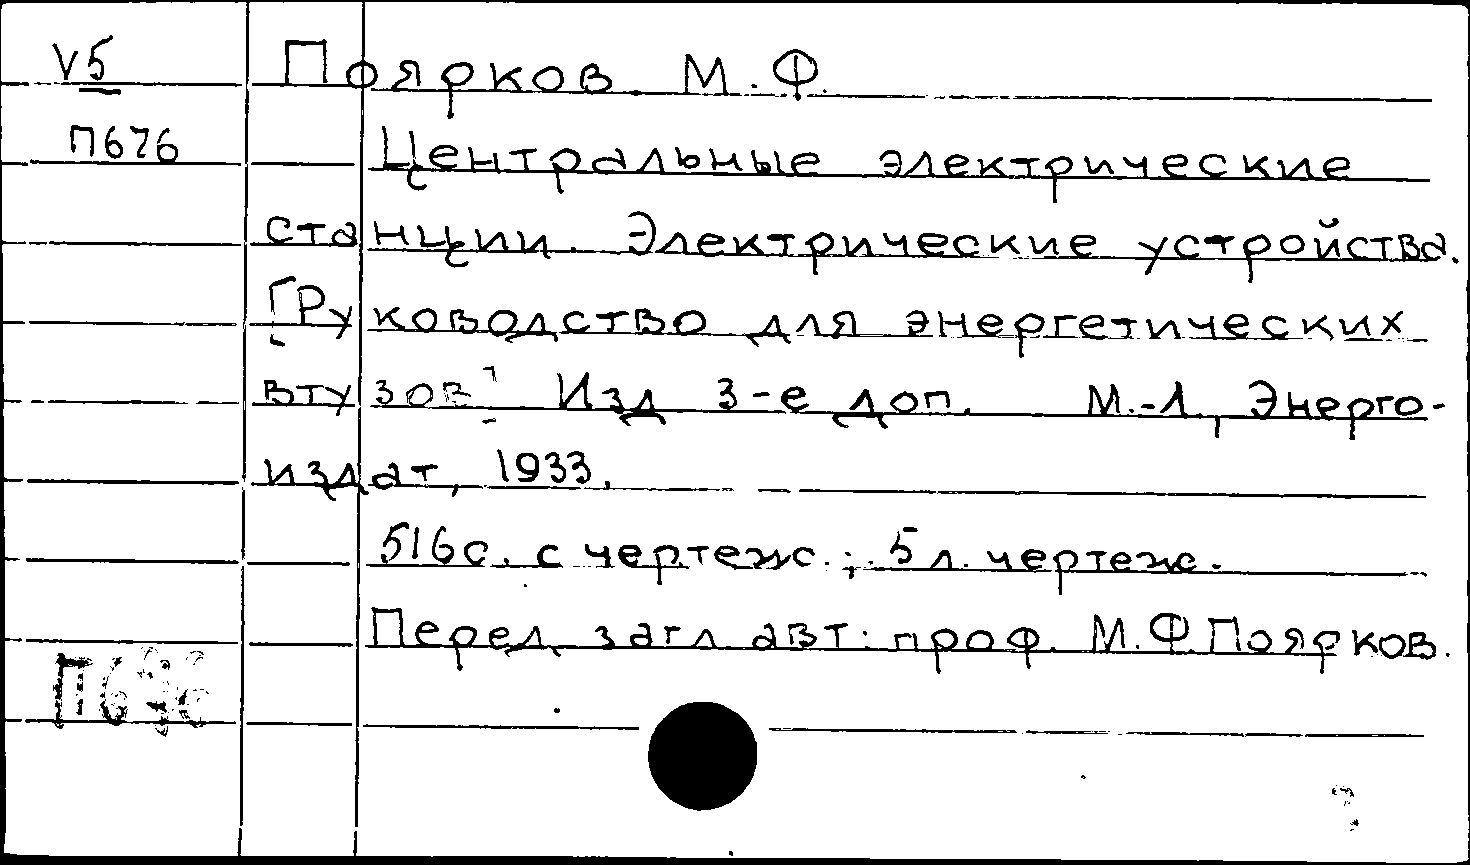 V5
П676
Поярков М.Ф.
Центральные электрические
станции. Электрические устройства.
[Руководство для энергетических
втузов] Изд 3-е доп. М.-Л., Энерго-
издат, 1933.
516с. с чертеж.; 5 л. чертеж.
Перед загл авт: проф. М.Ф Поярков.